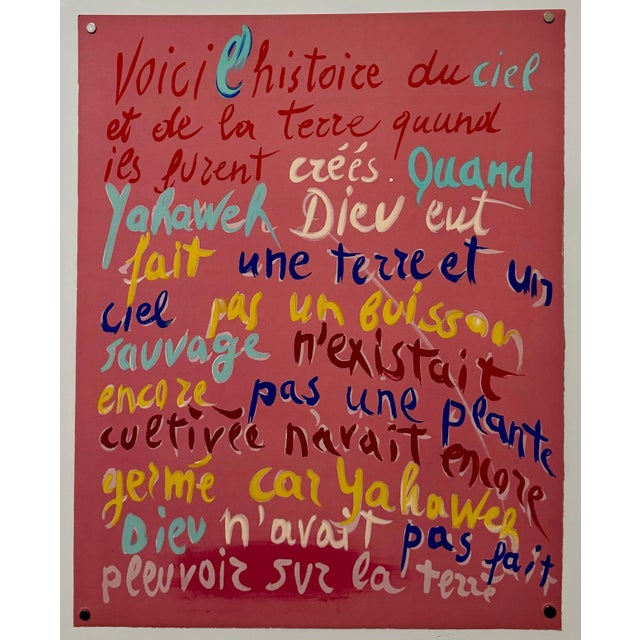 Voici l'histoire du ciel
et de la terre quund
ils furent créés. Quand
Yahaweh Dieu eut
fait une terre et un
ciel pas un buisson
sauvage n'existait
encore pas une plante
cultivée n'avait encore
germé car Yahaweh
Dieu n'avait pas fait
pleuvoir sur la terre